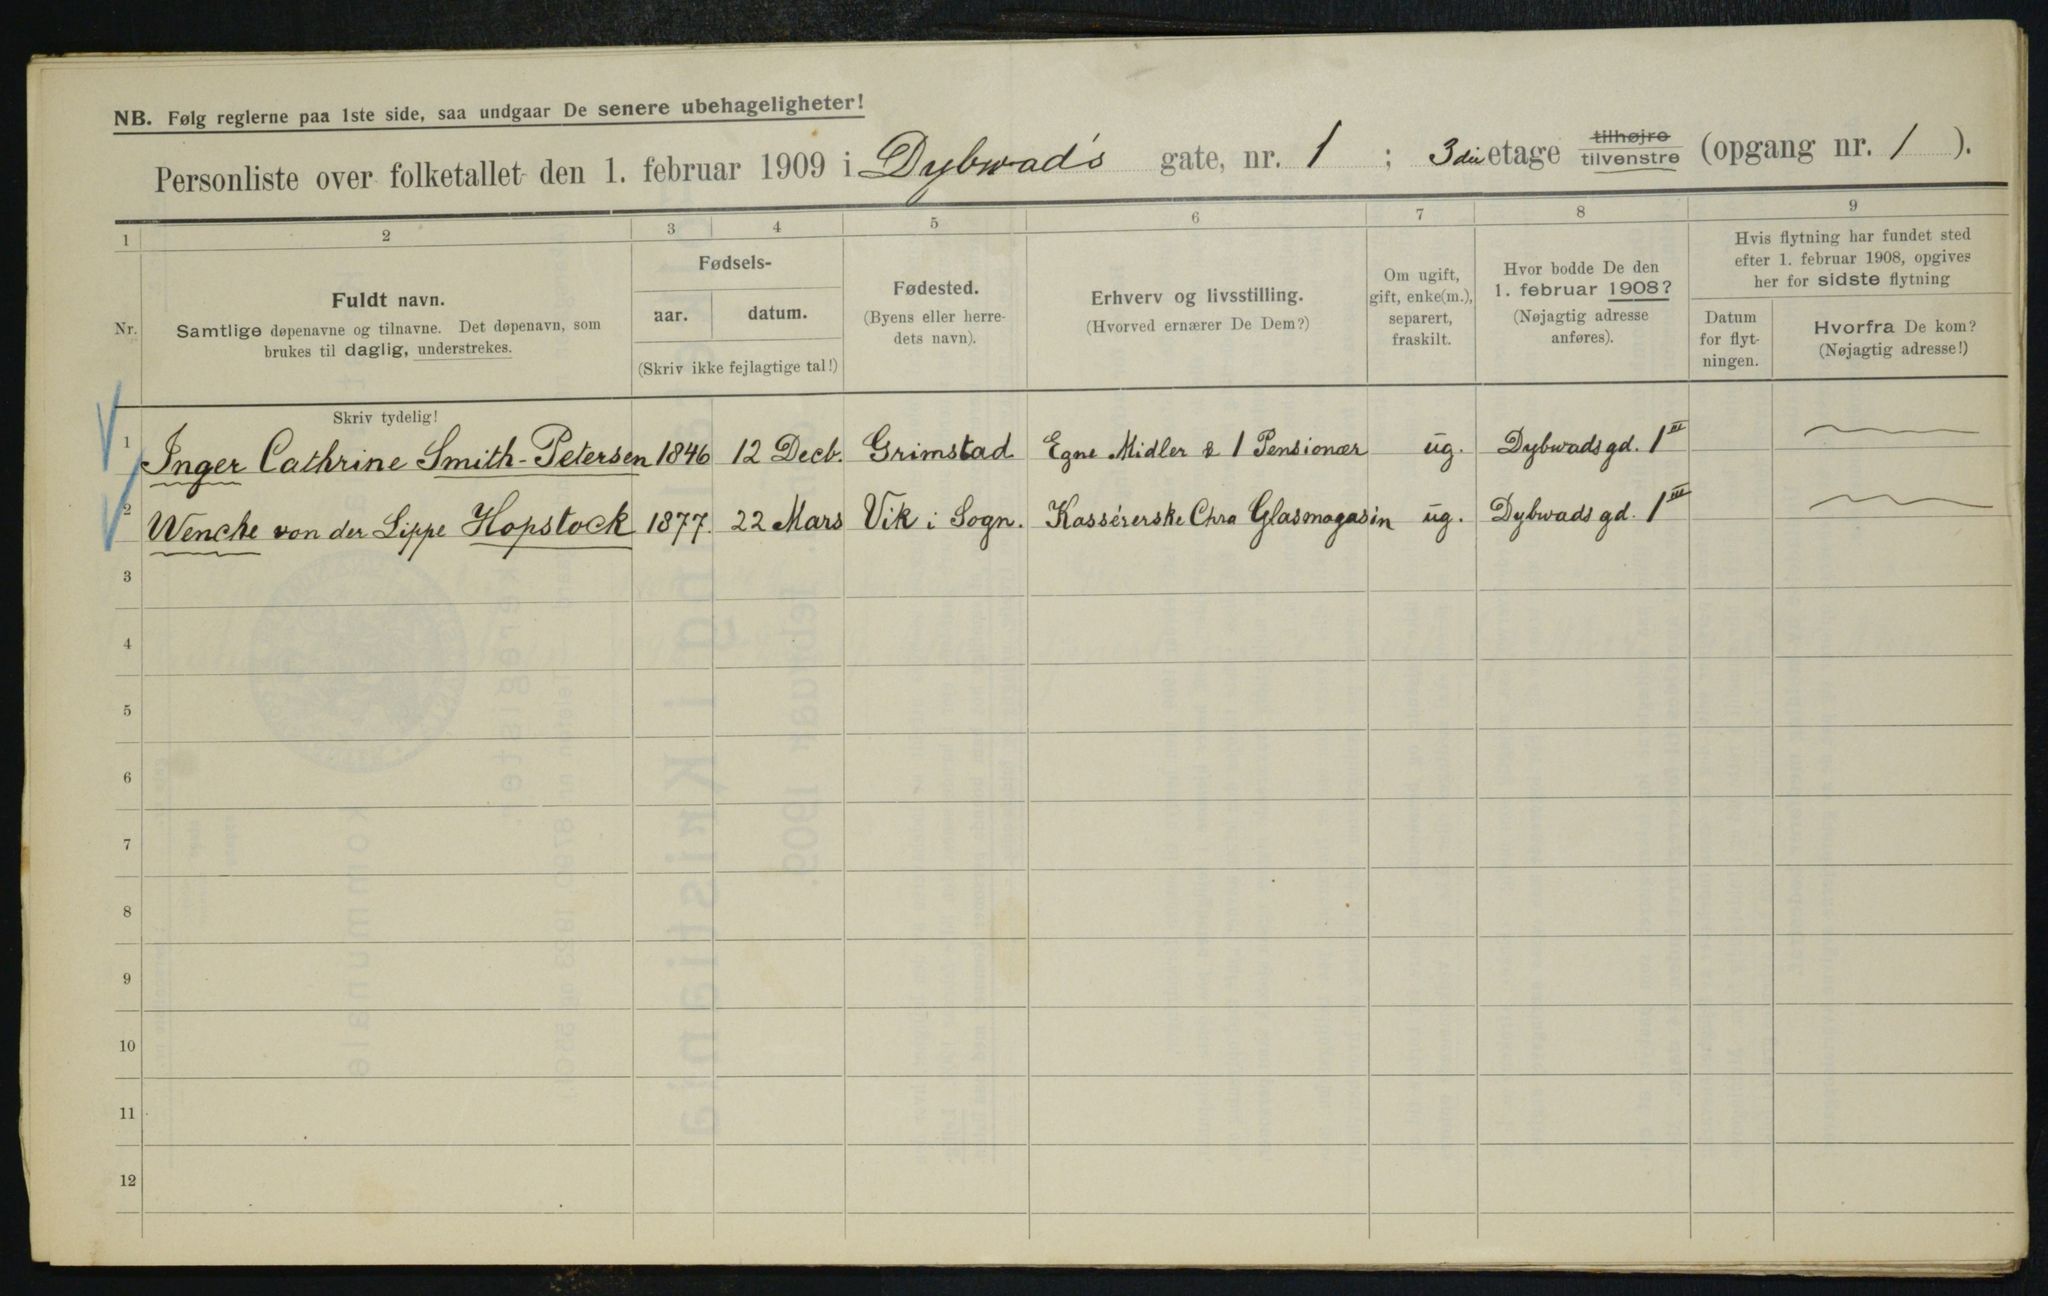 NB. Følg reglerne paa 1ste side, saa undgaar De senere ubehageligheter!
Personliste over folketallet den 1. februar 1909 i Dybwad's gate, nr. 1 ; 3die etage tilhøjre tilvenstre (opgang nr. 1 ).
1 2 3 4 5 6 7 8 9
Nr.
Fuldt navn.
Samtlige døpenavne og tilnavne. Det døpenavn, som
brukes til daglig, understrekes.
Skriv tydelig!
Fødsels-
aar. datum.
(Skriv ikke fejlagtige tal!)
Fødested.
(Byens eller herre-
dets navn).
Erhverv og livsstilling.
(Hvorved ernærer De Dem?)
Om ugift,
gift, enke(m.),
separert,
fraskilt.
Hvor bodde De den
1. februar 1908?
(Nøjagtig adresse
anføres).
Hvis flytning har fundet sted
efter 1. februar 1908, opgives
her for sidste flytning
Datum
for flyt-
ningen.
Hvorfra De kom?
(Nøjagtig adresse!)
1 Inger Cathrine Smith-Petersen 1846 12 Decb. Grimstad Egne Midler & 1 Pensionær ug. Dybwadsgd. 1 III
2 Wenche von der Lippe Hopstock 1877. 22 Mars Vik i Sogn. Kassérerske Chra Glasmagasin ug. Dybwadsgd. 1 III
3
4
5
6
7
8
9
10
11
12